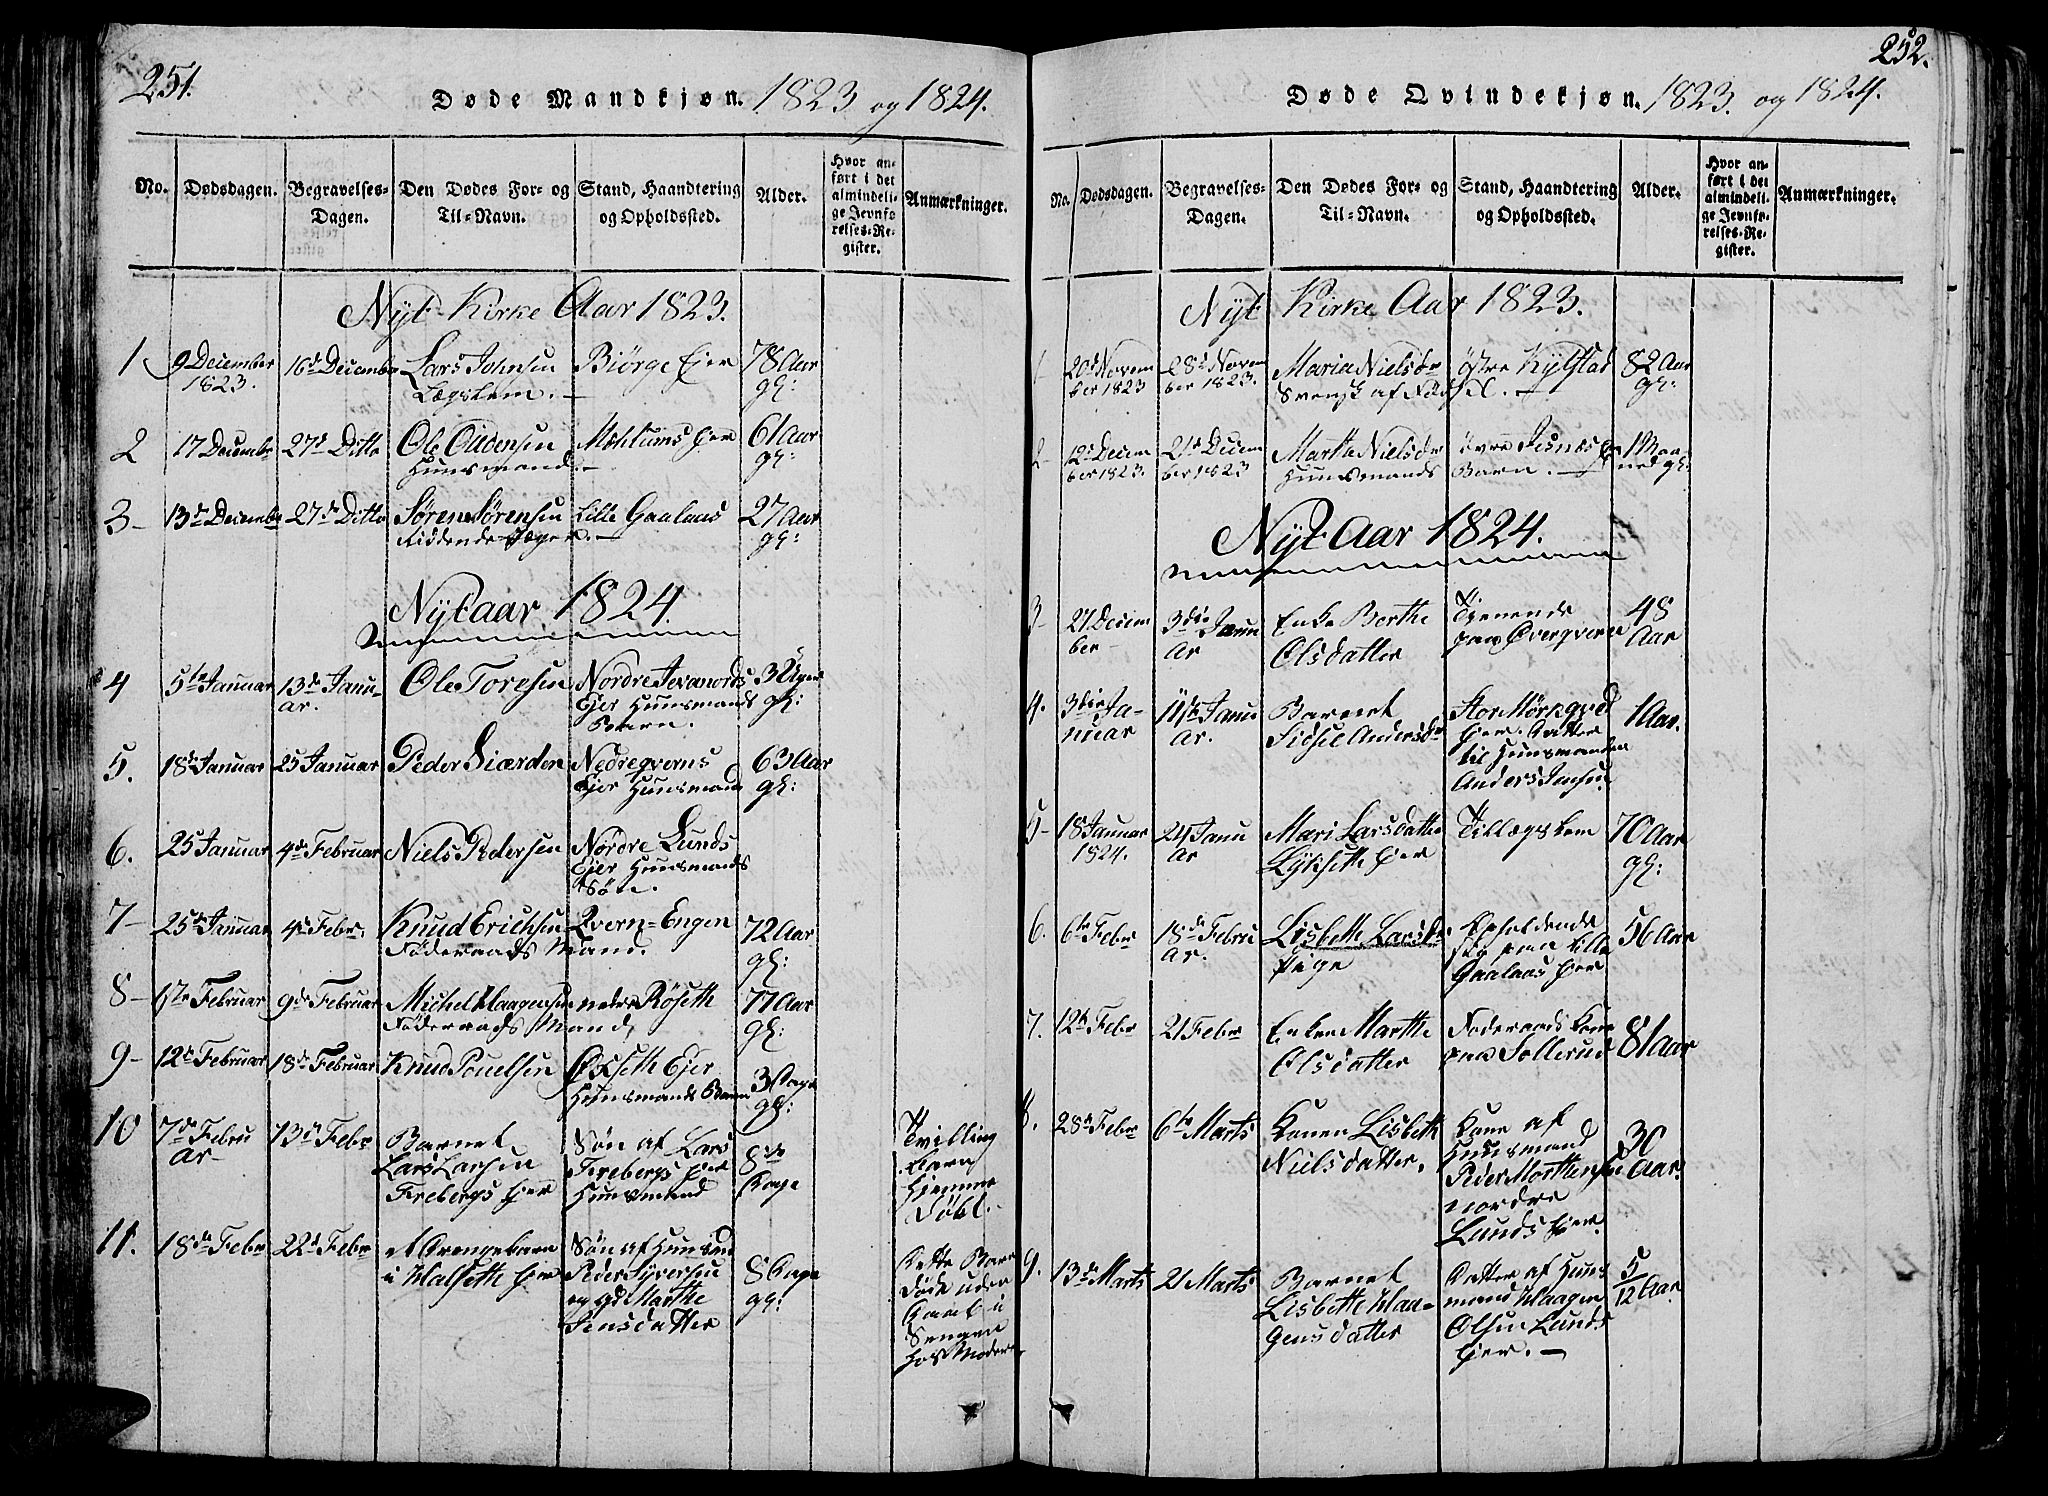 251.
Døde Mandkjøn. 1823 og 1824.
No.
Dødsdagen.
Begravelses-
Dagen.
Den Dødes For- og
Til-Navn.
Stand, Haandtering
og Opholdssted.
Alder.
Hvor an-
ført i det
almindeli-
ge Jevnfø
relses-Re-
gister.
Anmærkninger.
Nyt Kirke Aar 1823.
1
9 December
1823.
16d December
Lars Johnsen
Lægslem.
Biørge Eier
78 Aar
gl:
2
17 Decembr
27d Ditto
Ole Oudensen
Huusmand.
Mohlums Eier
61 Aar
gl:
3
13de Decembr
27de Ditto
Søren Sørensen
Riddende Jæger.
Lille Gaalaas
27 Aar
gl:
Nytaar 1824.
4
5te Januar
13de Janu-
ar.
Ole Toresen
Nordre
Ejer Huusmands
Barn.
3 Uger
gl:
5.
18de Januar
25 Januar
Peder
Nedreqverns
Ejer Huusmand
63 Aar
gl:
6.
25 Januar
4de Februar
Niels Pedersen
Nordre Lunds
Ejer Huusmands
Søn.
7
25de Januar
4de Febr.
Knud Erichsen
Føderaads Mand.
Qvern-Engen
72 Aar
gl:
8
1ste Februar
9de Februar
Michel Haagensen
Føderaads Mand,
nedre Røseth
77 Aar
gl:
9
12te Februar
18de Februar
Knud Pouelsen
Øxseth Ejer
Huusmands Barn
3 Dage
gl:
10
7de Febru
ar
13de Febr
Barnet
Lars Larsen
Frebergs Eier
Søn af Lars
Frebergs Eier
Huusmand
8te
Dage
Tvilling
Barn
Hjemme
Døbt.
11.
18de Febr
22d Febr
et Drengebarn
i Halseth Eier
Søn af Huusmd
Peder Syversen
og gd: Marthe
Jensdatter
8 Dage
gl:
Dette Barn
Døde uden
Daab i
Sengen
hos Moder
252.
Døde Qvindekjøn. 1823. og 1824.
No.
Dødsdagen.
Begravelses-
Dagen.
Den Dødes For- og
Til-Navn.
Stand, Haandtering
og Opholdssted.
Alder.
Hvor an-
ført i det
almindeli-
ge Jevnfø-
relses-Re-
gister.
Anmærkninger.
Nyt Kirke Aar 1823.
1
20d Novem
ber 1823
28d Novem
ber 1823.
Maria Nielsdr
Svensk af Fødsel.
østre Kylstad
82 Aar
gl:
2
12te Decem
ber 1823.
21de Decem
ber 1823
Marthe Nielsdr
Huusmands
øvre Jesnæs
Barn.
1 Maa
ned gl:
Nyt Aar 1824.
3
21 Decem
ber
3die Janu
ar
Enke Berthe
Olsdatter
Tjenende
paa Øvreqvern
48
Aar
4.
3die Ja-
nuar
11te Janu
ar.
Barnet
Sidsel Andersdr
Stor Mørkqved
Eier. Datter
til Huusmanden
Anders Jensen.
1 Aar.
5
18 Januar
1824.
24 Janu
ar
Mari Larsdatter
Lykseth Eier
Tillægslem
70 Aar
gl:
6.
6te Febr
18de Febru
ar.
Lisbeth Larsdr
Pige
Opholdende
sig paa Lille
Gaalaas Eier
56 Aar
7.
12te Febr
21 Febr
Enken Marthe
Olsdatter
Foderaads Kone
paa Sollerud
81 Aar
8.
28de Febr
6te Marts
Konen Lisbeth
Nielsdatter.
Kone af
Huusmand
Peder Morthensen
nordre
Lunds Eier.
30
Aar
9.
13de Marts
21 Marts
Barnet
Lisbethe Haa-
gensdatter
Datter af Huus
mand Haagen
Olsen Lunds
Eier.
5/12 Aar